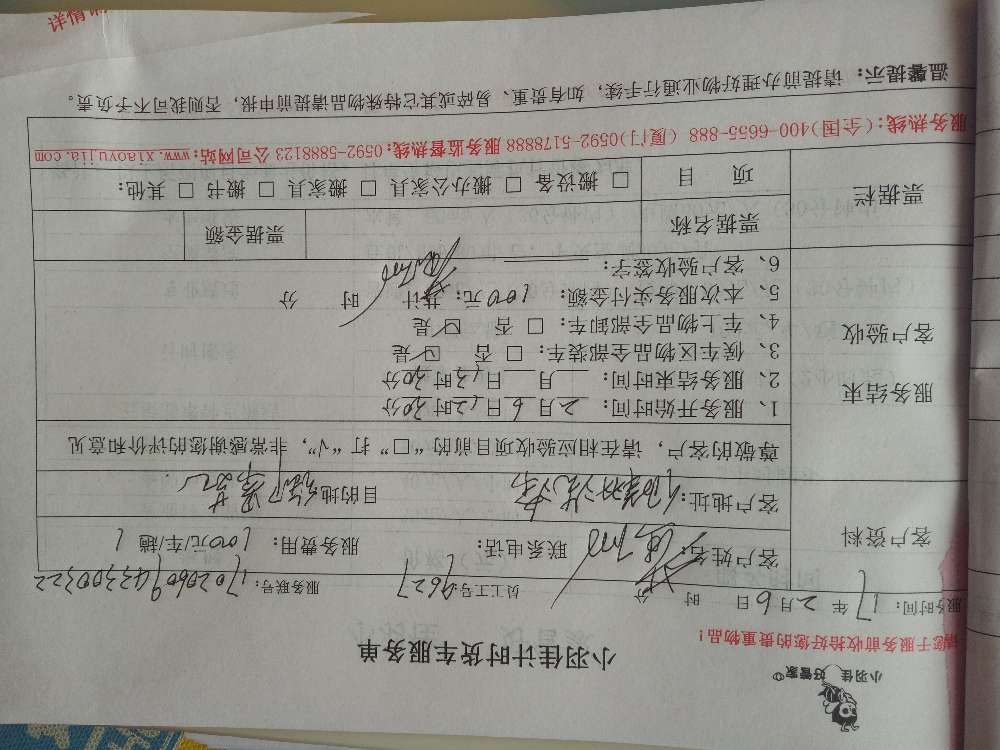 小羽佳 好管家
小羽佳计时货车服务单
请您于服务前收拾好您的贵重物品!
服务时间: 17 年 2 月 6 日 时 分 员工工号: 9627 服务联号:
客户资料
客户姓名: 联系电话: 服务费用: 100元/车/趟
客户地址: 目的地:
尊敬的客户,请在相应验收项目前的“□”打“√”,非常感谢您的评价和意见
服务结束
客户验收
1、服务开始时间: 2 月 6 日 12 时 30 分
2、服务结束时间: 月 日 13 时 30 分
3、候车区物品全部装车: □ 否 ☑ 是
4、车上物品全部卸车: □ 否 ☑ 是
5、本次服务实付金额: 100 元; 共计 时 分
6、客户验收签字:
票据栏
票据名称 票据金额
项 目 □ 搬设备 □ 搬办公家具 □ 搬家具 □ 搬书 □ 其他:
服务热线:(全国)400-6655-888 (厦门)0592-5178888 服务监督热线:0592-5888123 公司网站:www.xiaoyujia.com
温馨提示: 请提前办理好物业通行手续,如有贵重、易碎或其它特殊物品请提前申报,否则我司不予负责。
详情